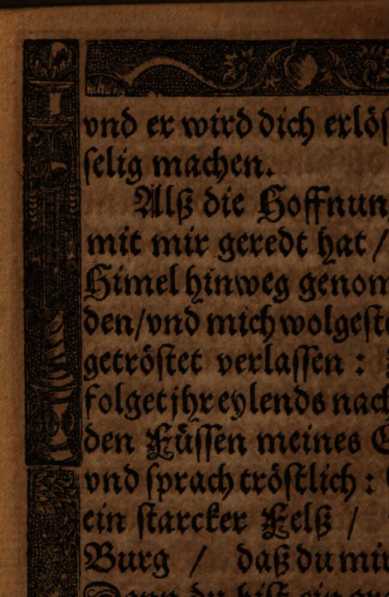 vnd er wird dich erlös
selig machen.
Alß die Hoffnun
mit mir geredt hat /
Himel hinweg genom
den/vnd mich wolgeste
getröstet verlassen :
folget jhr eylends nach
den Füssen meines G
vnd sprach tröstlich :
ein starcker Felß /
Burg / daß du mir
Dann du bist ein